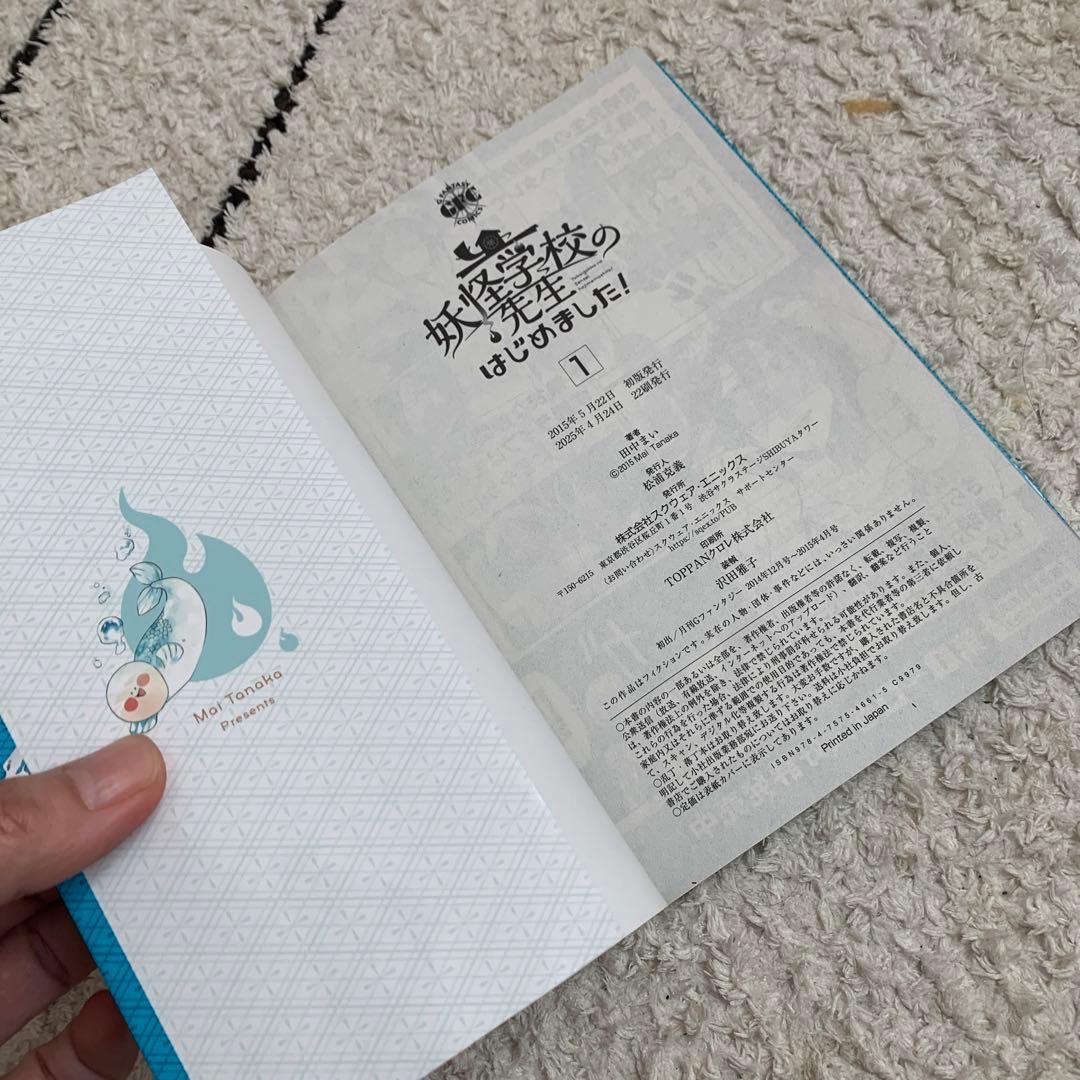 Mai Tanaka
Presents
G FANTASY
GFC
COMICS
妖怪学校の
先生
はじめました！
1
2015年5月22日 初版発行
2025年4月24日 22刷発行
著者
田中まい
©2015 Mai Tanaka
発行人
松浦克義
発行所
株式会社スクウェア・エニックス
〒150-6215 東京都渋谷区桜丘町1番1号 渋谷サクラステージSHIBUYAタワー
〈お問い合わせ〉スクウェア・エニックス サポートセンター
https://sqex.to/PUB
印刷所
TOPPANクロレ株式会社
装幀
沢田雅子
初出／月刊Gファンタジー 2014年12月号～2015年4月号
この作品はフィクションです。実在の人物・団体・事件などには、いっさい関係ありません。
○本書の内容の一部あるいは全部を、著作権者、出版権者等の許諾なく、転載、複写、複製、
公衆送信（放送、有線放送、インターネットへのアップロード）、翻訳、翻案など行うこと
は、著作権法上の例外を除き、法律で禁じられています。
これらの行為を行った場合、法律により刑事罰が科せられる可能性があります。また、個人、
家庭内又はそれらに準ずる範囲での使用目的であっても、本書を代行業者等の第三者に依頼し
て、スキャン、デジタル化等複製する行為は著作権法で禁じられています。
○乱丁・落丁本はお取り替え致します。大変お手数ですが、購入された書店名と不具合箇所を
明記して小社出版業務部宛にお送り下さい。送料は小社負担でお取り替え致します。但し、古
書店でご購入されたものについてはお取り替えに応じかねます。
○定価は表紙カバーに表示してあります。
ISBN978-4-7575-4661-5 C9979
Printed in Japan